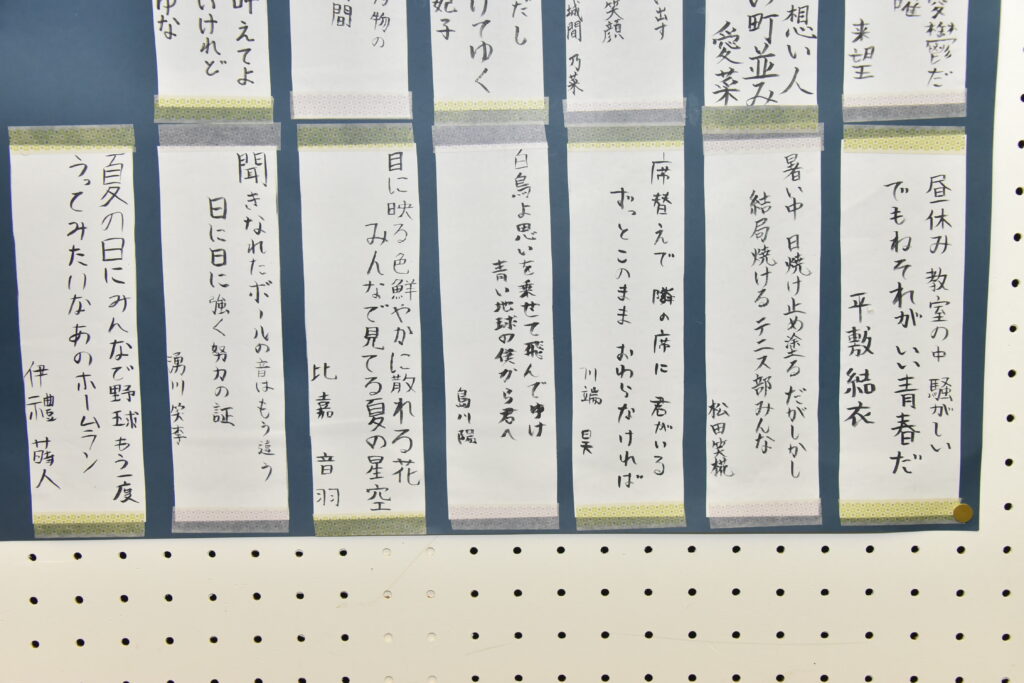 憂鬱だ
来望
想い人
い町並み
愛菜
出す
笑顔
城間 乃菜
だし
けてゆく
妃子
物の
間
叶えてよ
いけれど
ゆな
昼休み 教室の中 騒がしい
でもねそれが いい青春だ
平敷 結衣
暑い中 日焼け止め塗る だがしかし
結局焼ける テニス部みんな
松田笑椛
席替えで 隣の席に 君がいる
ずっとこのまま おわらなければ
川端 昊
白鳥よ思いを乗せて飛んでゆけ
青い地球の僕から君へ
島川陽
目に映る色鮮やかに散れる花
みんなで見てる夏の星空
比嘉 音羽
聞きなれたボールの音はもう違う
日に日に強く努力の証
湧川笑李
夏の日にみんなで野球もう一度
うってみたいなあのホームラン
伊禮 蒔人